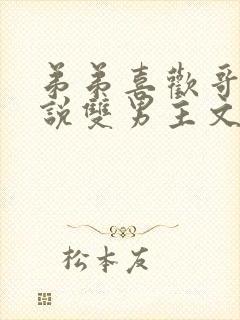 弟弟喜歡哥
說雙男主文
松本友